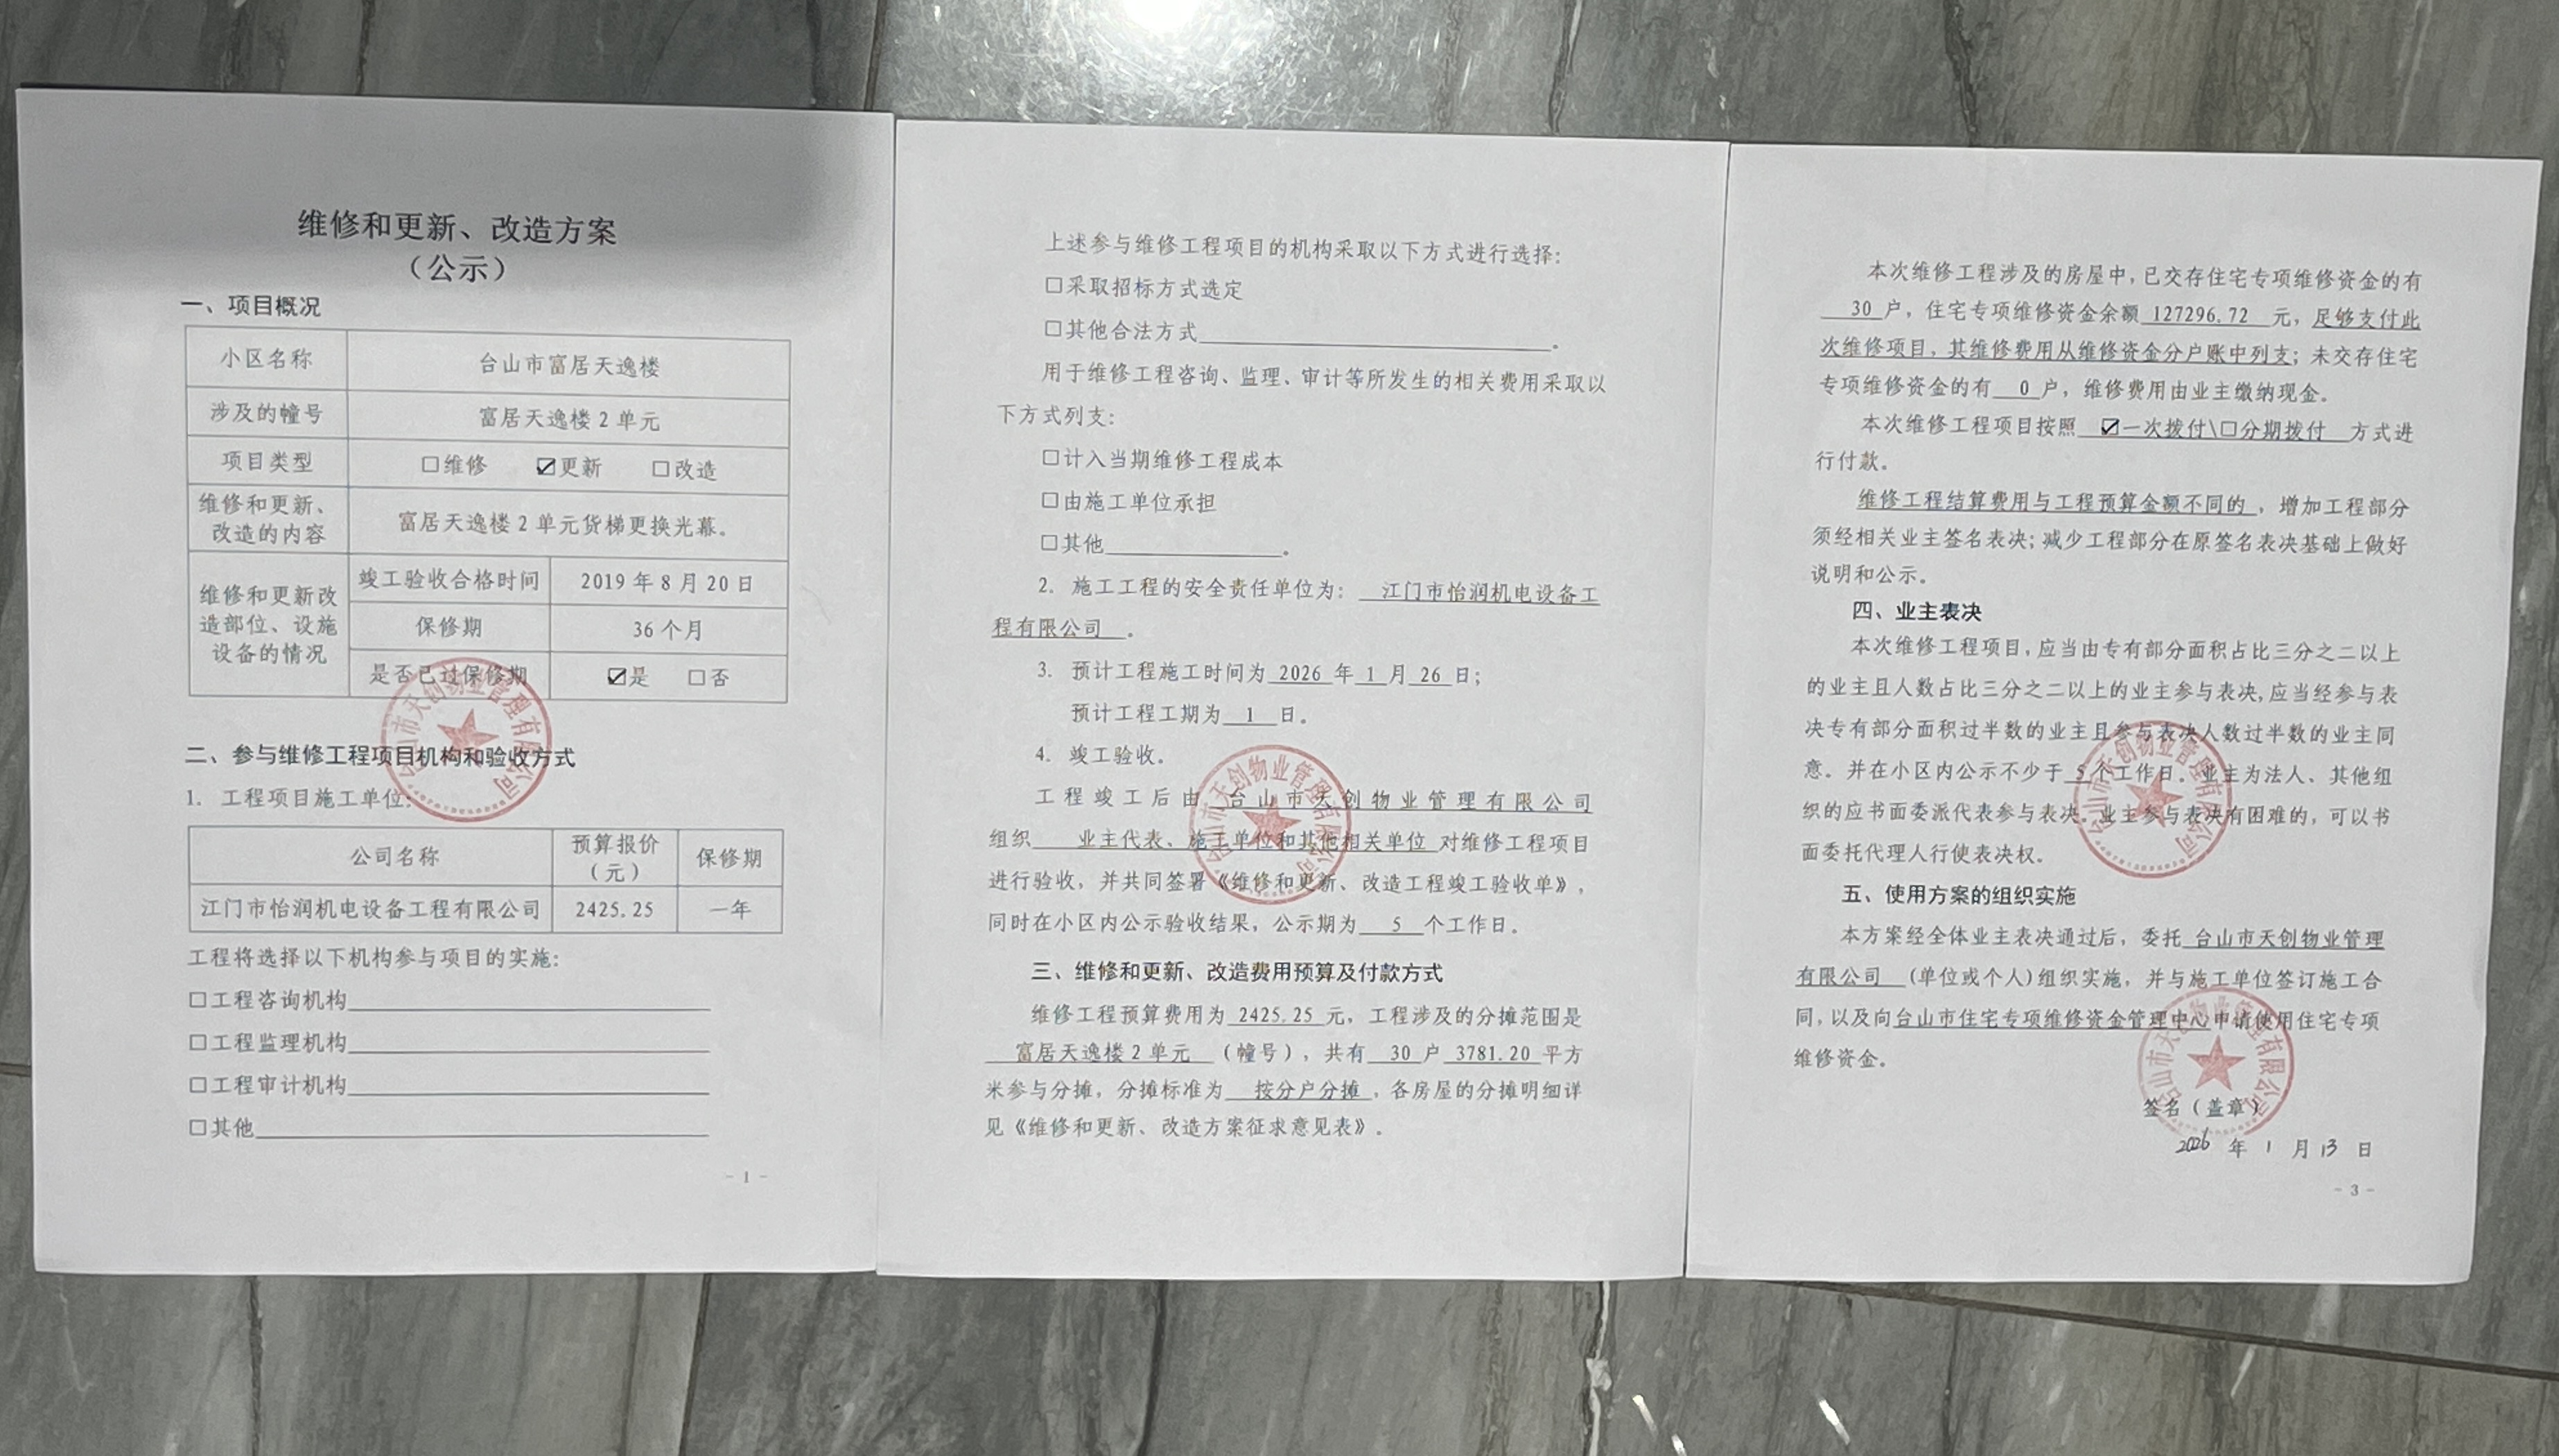 维修和更新、改造方案
（公示）
一、项目概况
小区名称 台山市富居天逸楼
涉及的幢号 富居天逸楼2单元
项目类型 □维修 ☑更新 □改造
维修和更新、
改造的内容
富居天逸楼2单元货梯更换光幕。
维修和更新改
造部位、设施
设备的情况
竣工验收合格时间 2019年8月20日
保修期 36个月
是否已过保修期 ☑是 □否
二、参与维修工程项目机构和验收方式
1. 工程项目施工单位:
公司名称 预算报价（元） 保修期
江门市怡润机电设备工程有限公司 2425.25 一年
工程将选择以下机构参与项目的实施:
□工程咨询机构
□工程监理机构
□工程审计机构
□其他
- 1 -
台山市天创物业管理有限公司
上述参与维修工程项目的机构采取以下方式进行选择:
□采取招标方式选定
□其他合法方式。
用于维修工程咨询、监理、审计等所发生的相关费用采取以
下方式列支:
□计入当期维修工程成本
□由施工单位承担
□其他。
2. 施工工程的安全责任单位为: 江门市怡润机电设备工
程有限公司 。
3. 预计工程施工时间为 2026 年 1 月 26 日;
预计工程工期为 1 日。
4. 竣工验收。
工程竣工后由 台山市天创物业管理有限公司
组织 业主代表、施工单位和其他相关单位 对维修工程项目
进行验收，并共同签署《维修和更新、改造工程竣工验收单》，
同时在小区内公示验收结果，公示期为 5 个工作日。
三、维修和更新、改造费用预算及付款方式
维修工程预算费用为 2425.25 元，工程涉及的分摊范围是
富居天逸楼2单元 （幢号），共有 30 户 3781.20 平方
米参与分摊，分摊标准为 按分户分摊 ，各房屋的分摊明细详
见《维修和更新、改造方案征求意见表》.
台山市天创物业管理有限公司
本次维修工程涉及的房屋中,已交存住宅专项维修资金的有
30 户，住宅专项维修资金余额 127296.72 元，足够支付此
次维修项目，其维修费用从维修资金分户账中列支；未交存住宅
专项维修资金的有 0 户，维修费用由业主缴纳现金。
本次维修工程项目按照 ☑一次拨付\□分期拨付 方式进
行付款。
维修工程结算费用与工程预算金额不同的 ，增加工程部分
须经相关业主签名表决;减少工程部分在原签名表决基础上做好
说明和公示。
四、业主表决
本次维修工程项目,应当由专有部分面积占比三分之二以上
的业主且人数占比三分之二以上的业主参与表决,应当经参与表
决专有部分面积过半数的业主且参与表决人数过半数的业主同
意。并在小区内公示不少于 5 个工作日。业主为法人、其他组
织的应书面委派代表参与表决。业主参与表决有困难的，可以书
面委托代理人行使表决权。
五、使用方案的组织实施
本方案经全体业主表决通过后，委托 台山市天创物业管理
有限公司 (单位或个人)组织实施，并与施工单位签订施工合
同,以及向台山市住宅专项维修资金管理中心申请使用住宅专项
维修资金。
签名（盖章）
2026 年 1 月 13 日
- 3 -
台山市天创物业管理有限公司
台山市天创物业管理有限公司